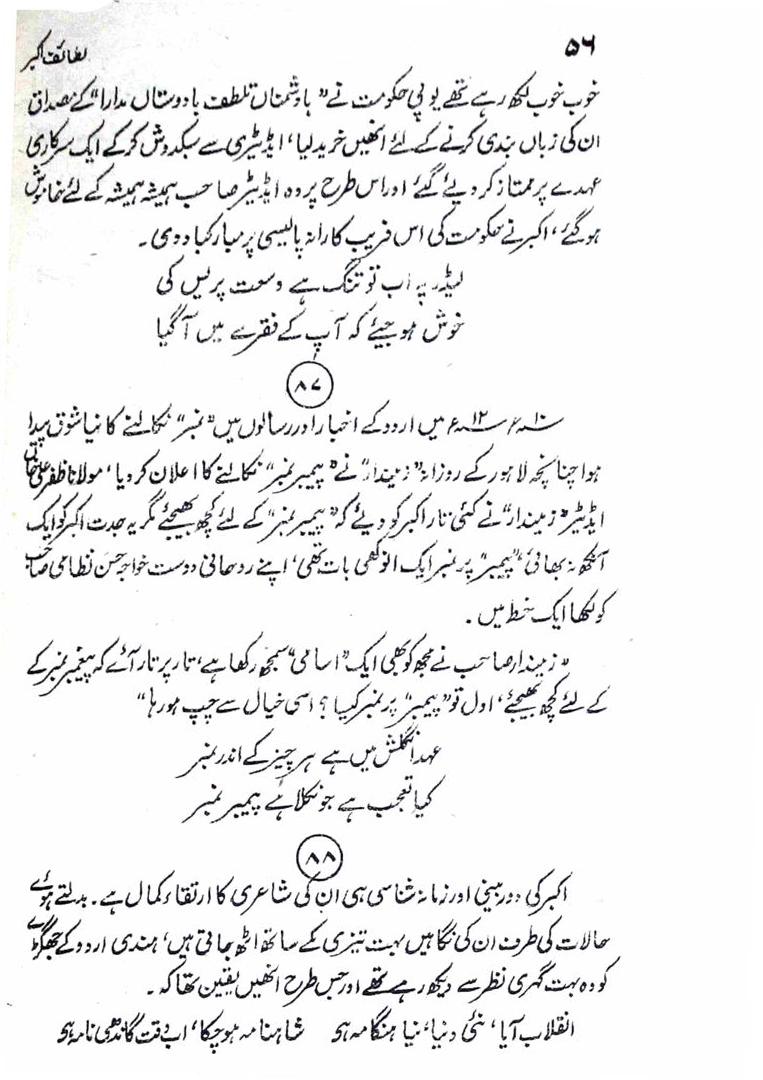 ۵۶
لطائف اکبر
خوب خوب لکھ رہے تھے یو پی حکومت نے "بادشمناں تلطف بادوستاں مدارا" کے مصداق
ان کی زباں بندی کرنے کے لئے انھیں خرید لیا، ایڈیٹری سے سبکدوش کرکے ایک سرکاری
عہدے پر ممتاز کر دیئے گئے اور اس طرح پر وہ ایڈیٹر صاحب ہمیشہ ہمیشہ کے لئے خاموش
ہو گئے، اکبر نے حکومت کی اس فریب کارانہ پالیسی پر مبارکباد دی۔
لیڈر پہ اب تو تنگ ہے وسعت پریس کی
خوش ہو جیئے کہ آپ کے فقرے میں آگیا
۸۷
۱۰ء ۱۲ء میں اردو کے اخبار اور رسالوں میں "نمبر" نکالنے کا نیا شوق پیدا
ہوا چنانچہ لاہور کے روزانہ "زمیندار" نے "پیمبر نمبر" نکالنے کا اعلان کر دیا، مولانا ظفر علی خاں
ایڈیٹر "زمیندار" نے کئی تار اکبر کو دیئے کہ "پیمبر نمبر" کے لئے کچھ بھیجئے مگر یہ جدت اکبر کو ایک
آنکھ نہ بھائی، "پیمبر" پر نمبر ایک انوکھی بات تھی، اپنے روحانی دوست خواجہ حسن نظامی صاحب
کو لکھا ایک خط میں۔
"زمیندار صاحب نے مجھ کو بھی ایک "اسامی" سمجھ رکھا ہے، تار پر تار آئے کہ پیغمبر نمبر کے
کے لئے کچھ بھیجئے، اول تو "پیمبر" پر نمبر کیسا؟ اسی خیال سے چپ ہو رہا"
عہد انگلش میں ہے ہر چیز کے اندر نمبر
کیا تعجب ہے جو نکلا ہے پیمبر نمبر
۸۸
اکبر کی دور بینی اور زمانہ شناسی ہی ان کی شاعری کا ارتقاء کمال ہے۔ بدلتے ہوئے
حالات کی طرف ان کی نگاہیں بہت تیزی کے ساتھ اٹھ جاتی ہیں، ہندی اردو کے جھگڑے
کو وہ بہت گہری نظر سے دیکھ رہے تھے اور جس طرح انھیں یقین تھا کہ۔
انقلاب آیا، نئی دنیا، نیا ہنگامہ ہو شاہنامہ ہو چکا، اب وقت گاندھی نامہ ہو